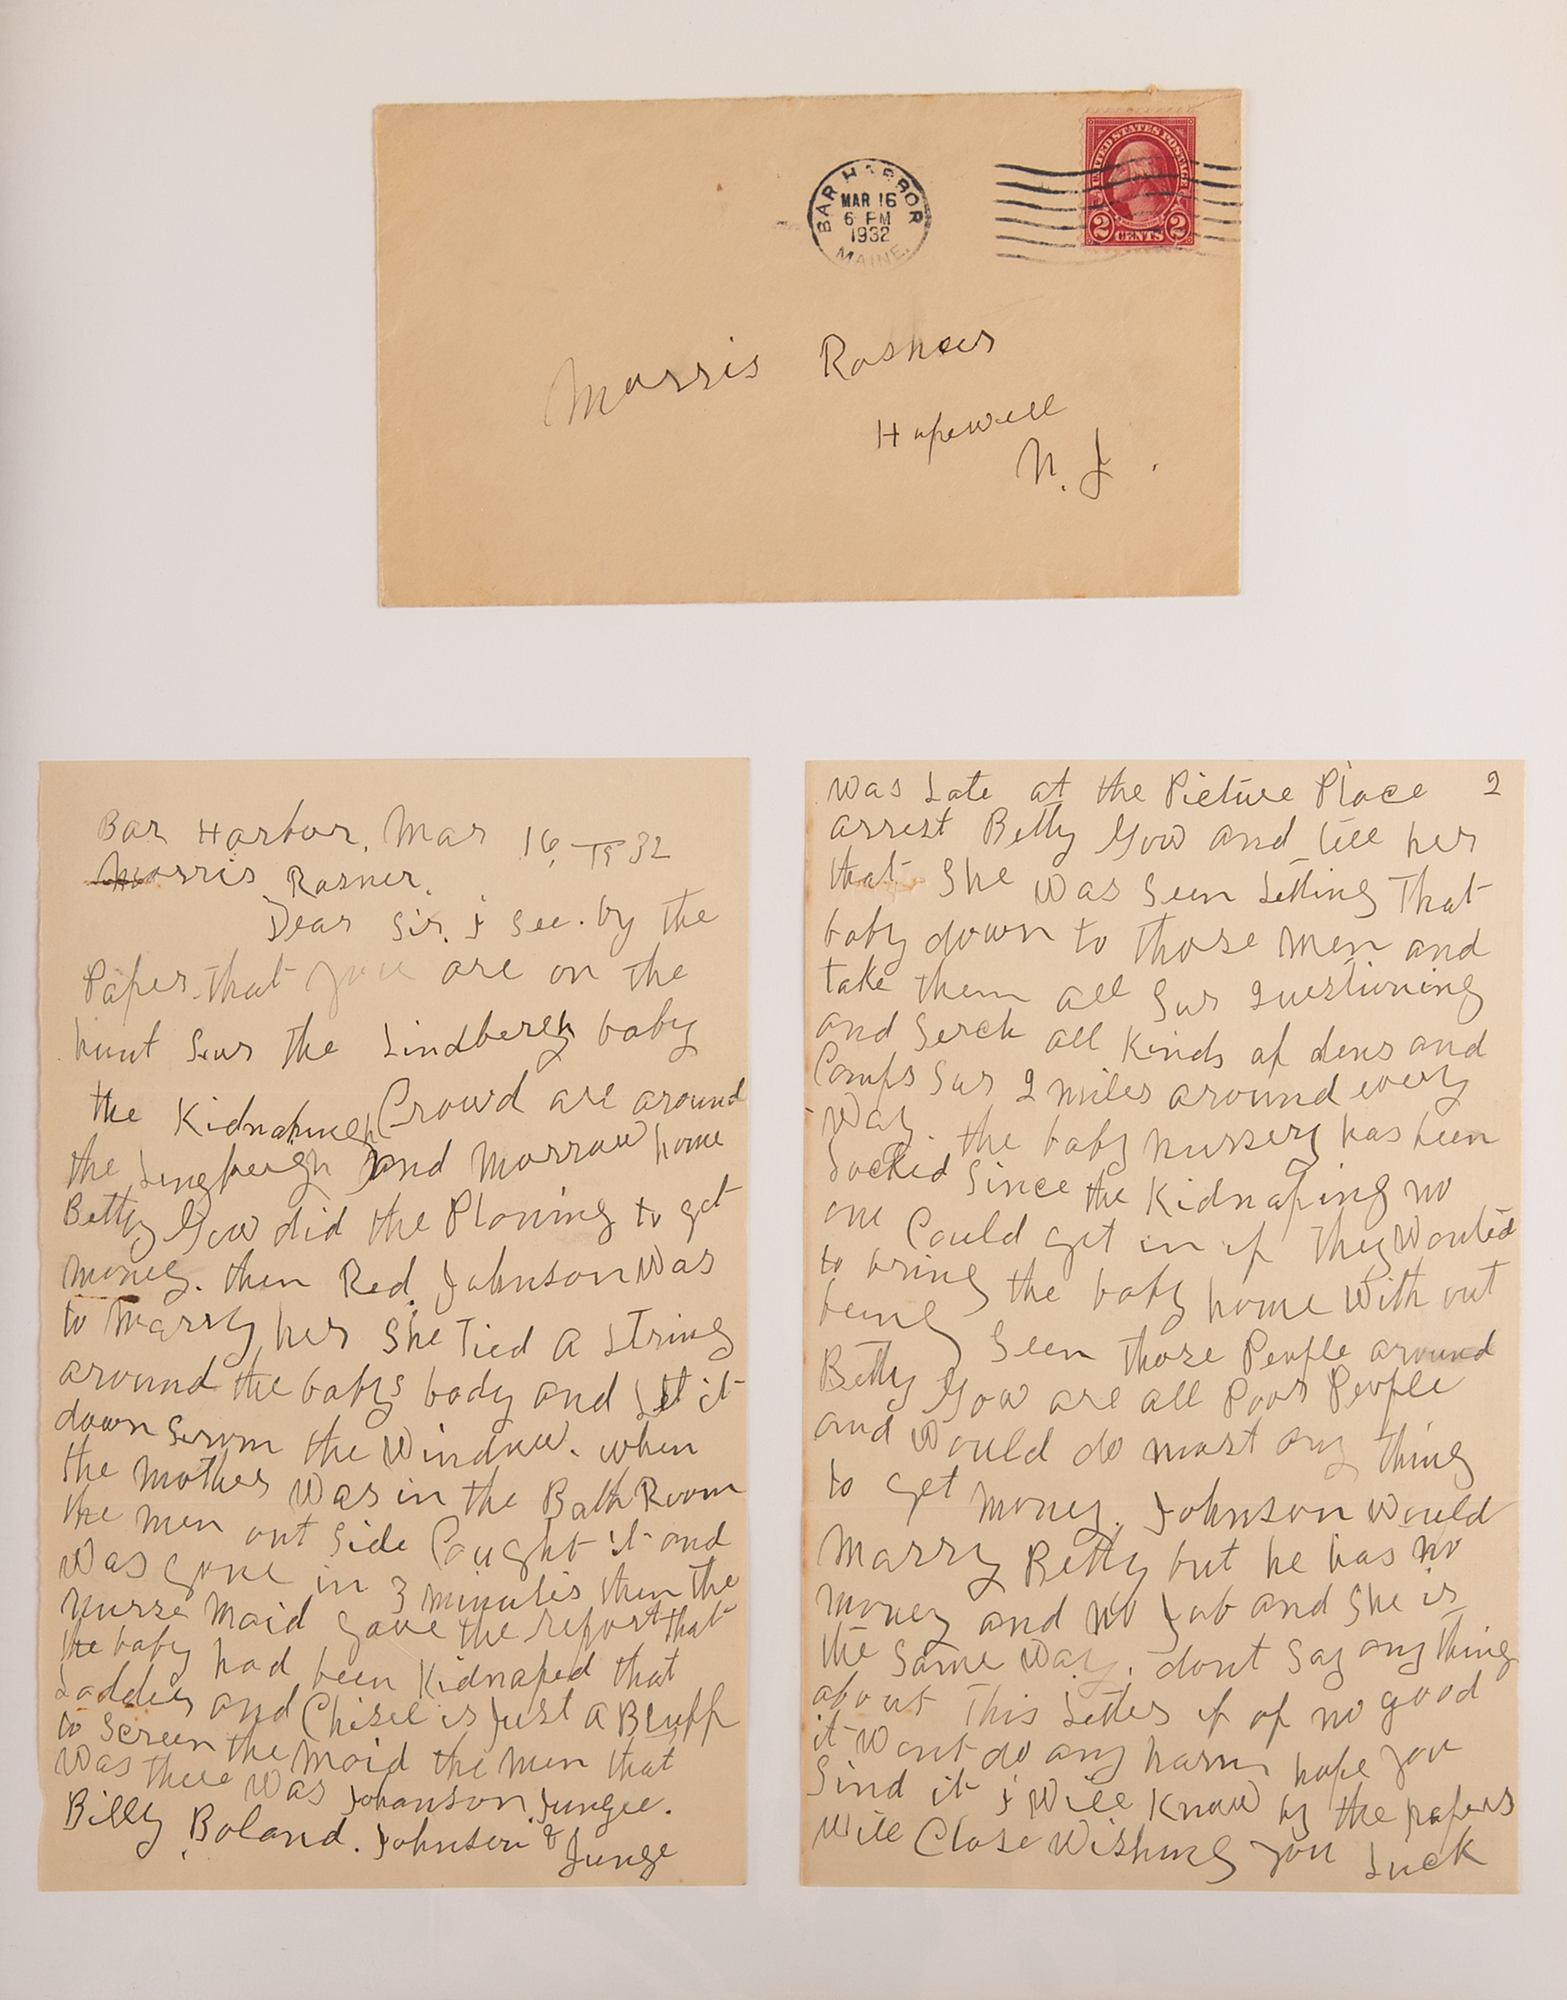 BAR HARBOR
MAR 16
6 PM
1932
MAINE.
UNITED STATES POSTAGE
2 CENTS 2
Morris Rosner
Hopewell
N. J.
Bar Harbor, Mar 16, 1932
Morris Rosner.
Dear Sir, I see by the
Paper that you are on the
hunt Sur the Lindbergh baby
the Kidnaping Crowd are around
the Lingbergh and Morrow home
Betty Gow did the Planing to get
money. then Red Johnson was
to Marry her She Tied A String
around the babys body and Let it
down Srom the Window. when
the mother was in the Bath Room
the men out Side Caught it and
was gone in 3 minutes then the
nurse Maid gave the report that
the baby had been Kidnaped that
Ladder and Chisel is Just A Bluff
to Screen the Maid the men that
was there was Johanson, Jungee.
Billy Boland. Johnson & Junge
was Late at the Picture Place 2
arrest Betty Gow and tell her
that She was Seen Letting That
baby down to those men and
take them all Sur Questioning
and Serch all Kinds of dens and
Camps Sur 2 miles around every
way. the baby nursery has been
Locked Since the Kidnaping no
one Could get in if They Wonted
to bring the baby home with out
being Seen those People around
Betty Gow are all Poor People
and Would do most any thing
to get money. Johnson Would
Marry Betty but he has no
money and no Job and She is
the Same way. dont Say any thing
about This Letter if of no good
it wont do any harm hope you
Sind it I Will Know by the papers
Will Close Wishing you Luck